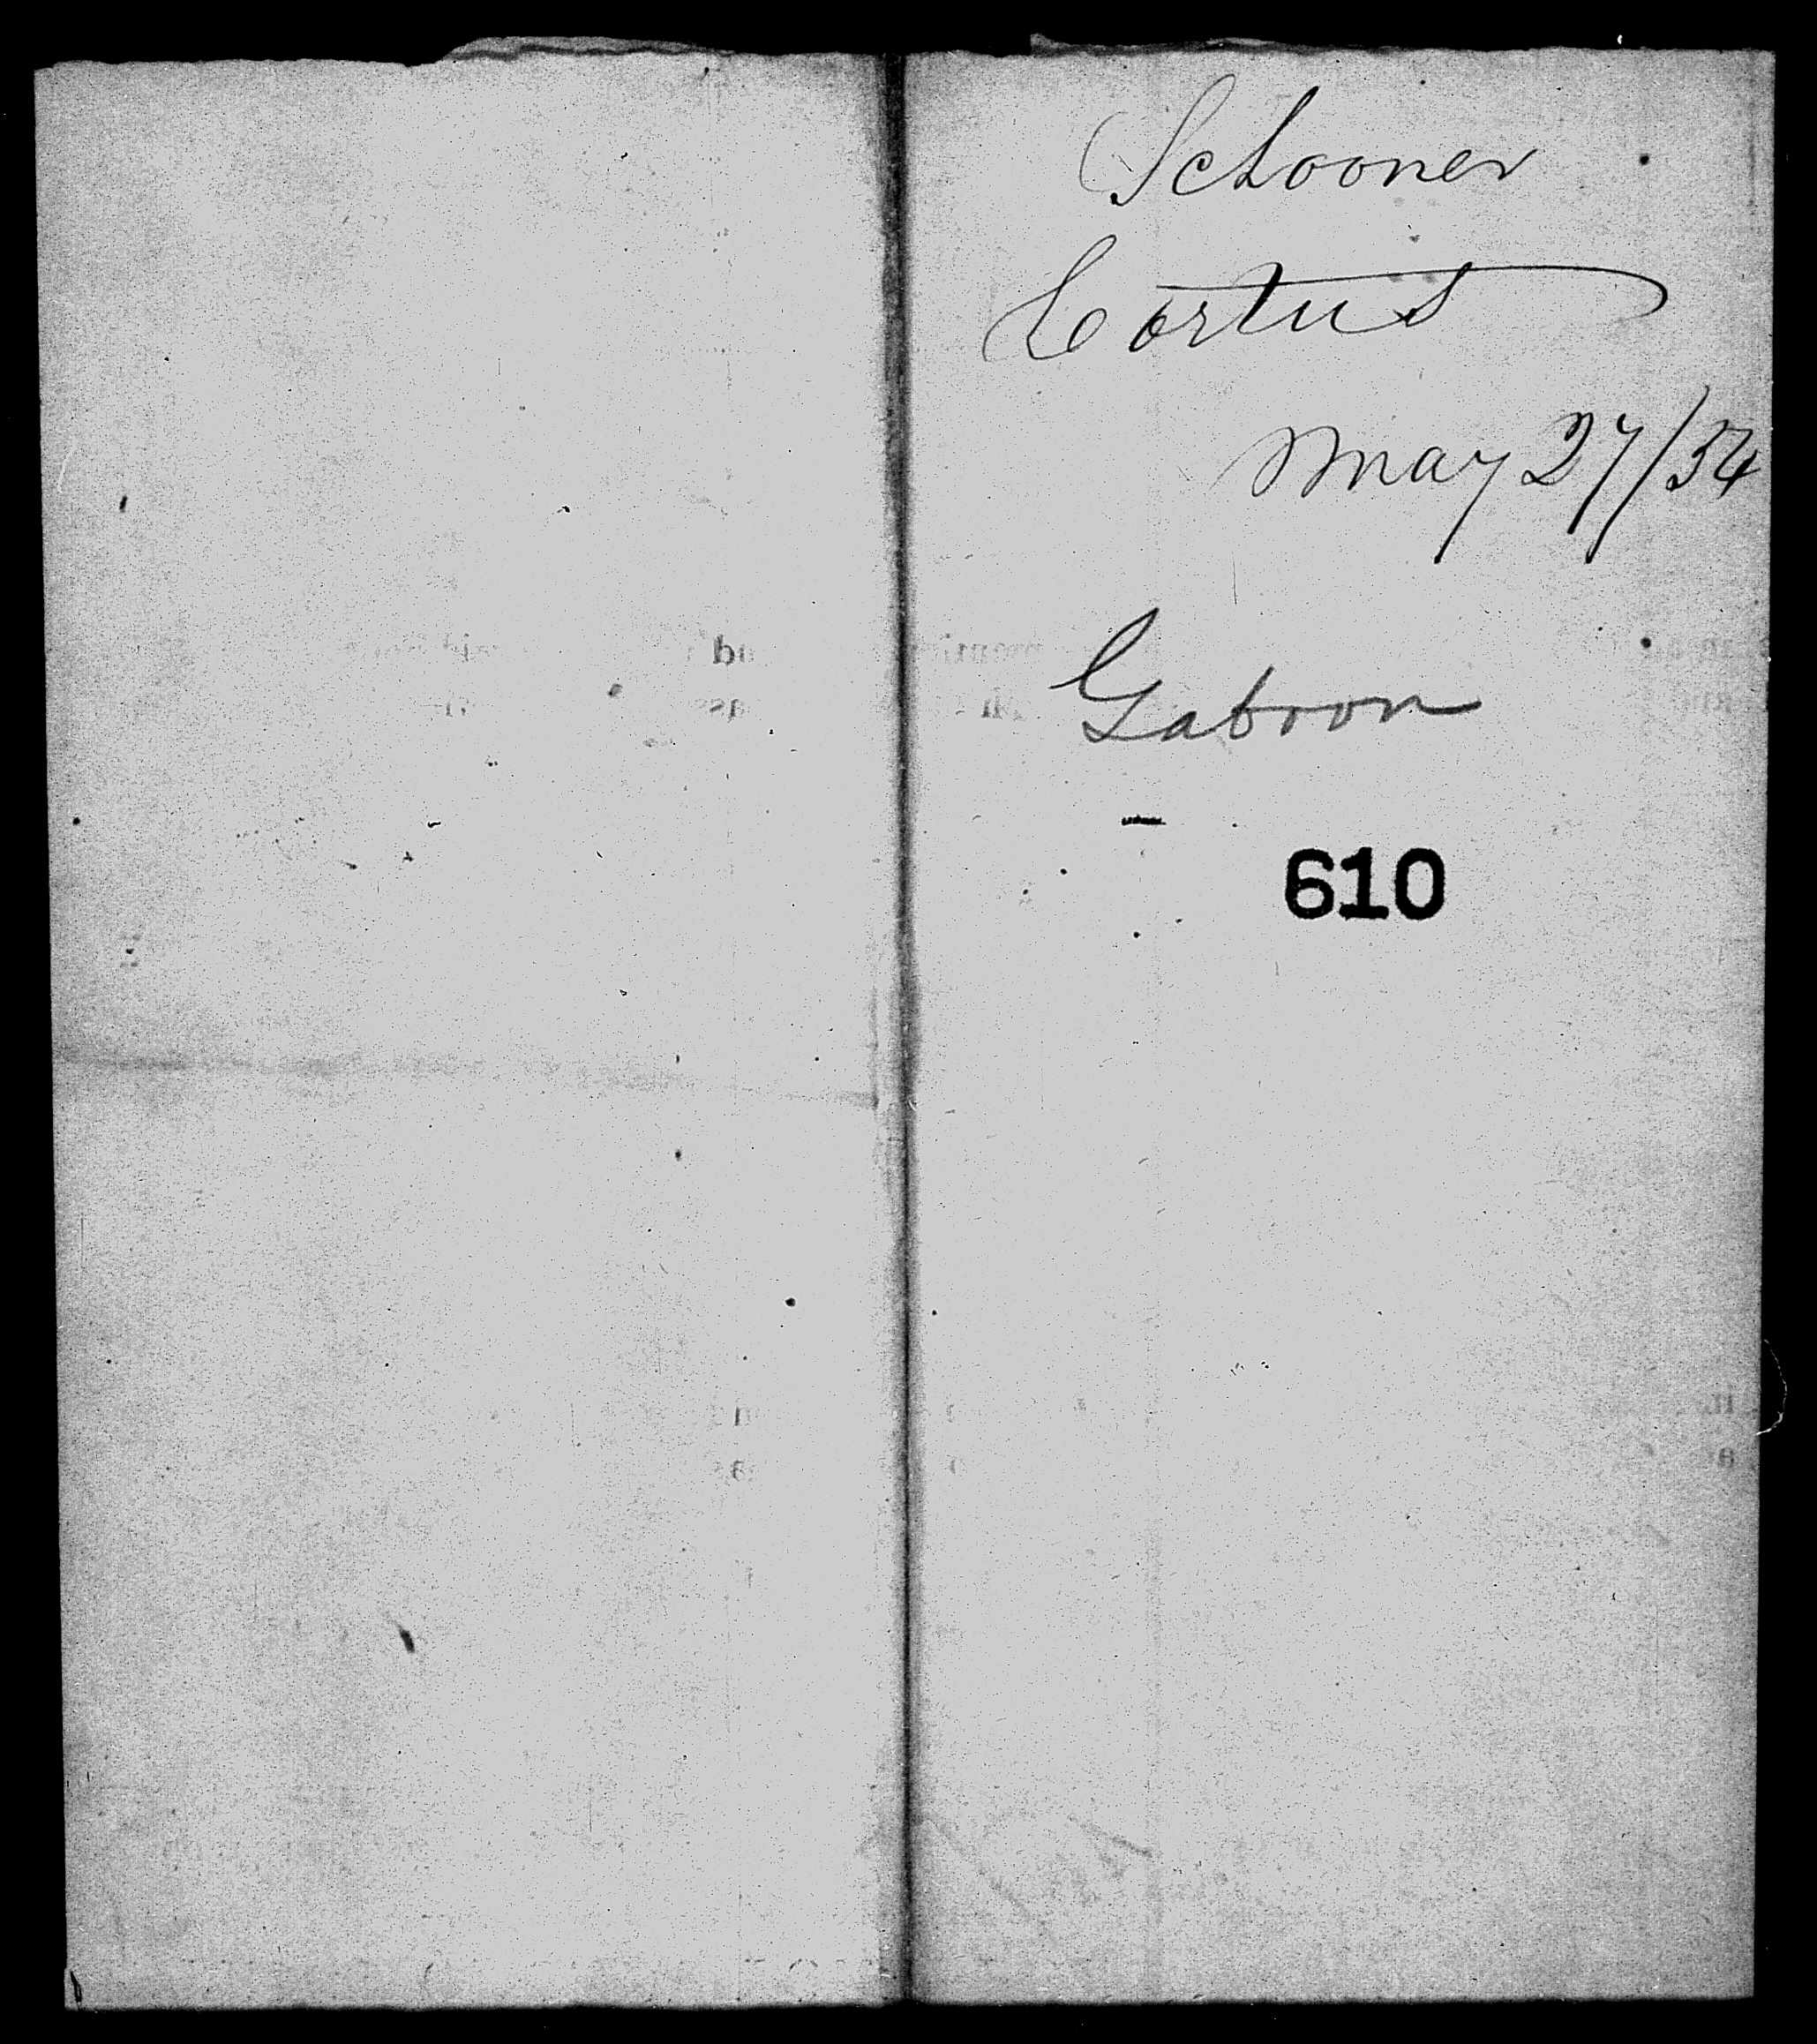 Schooner
Cortus
May 27/34
Gaboon
610